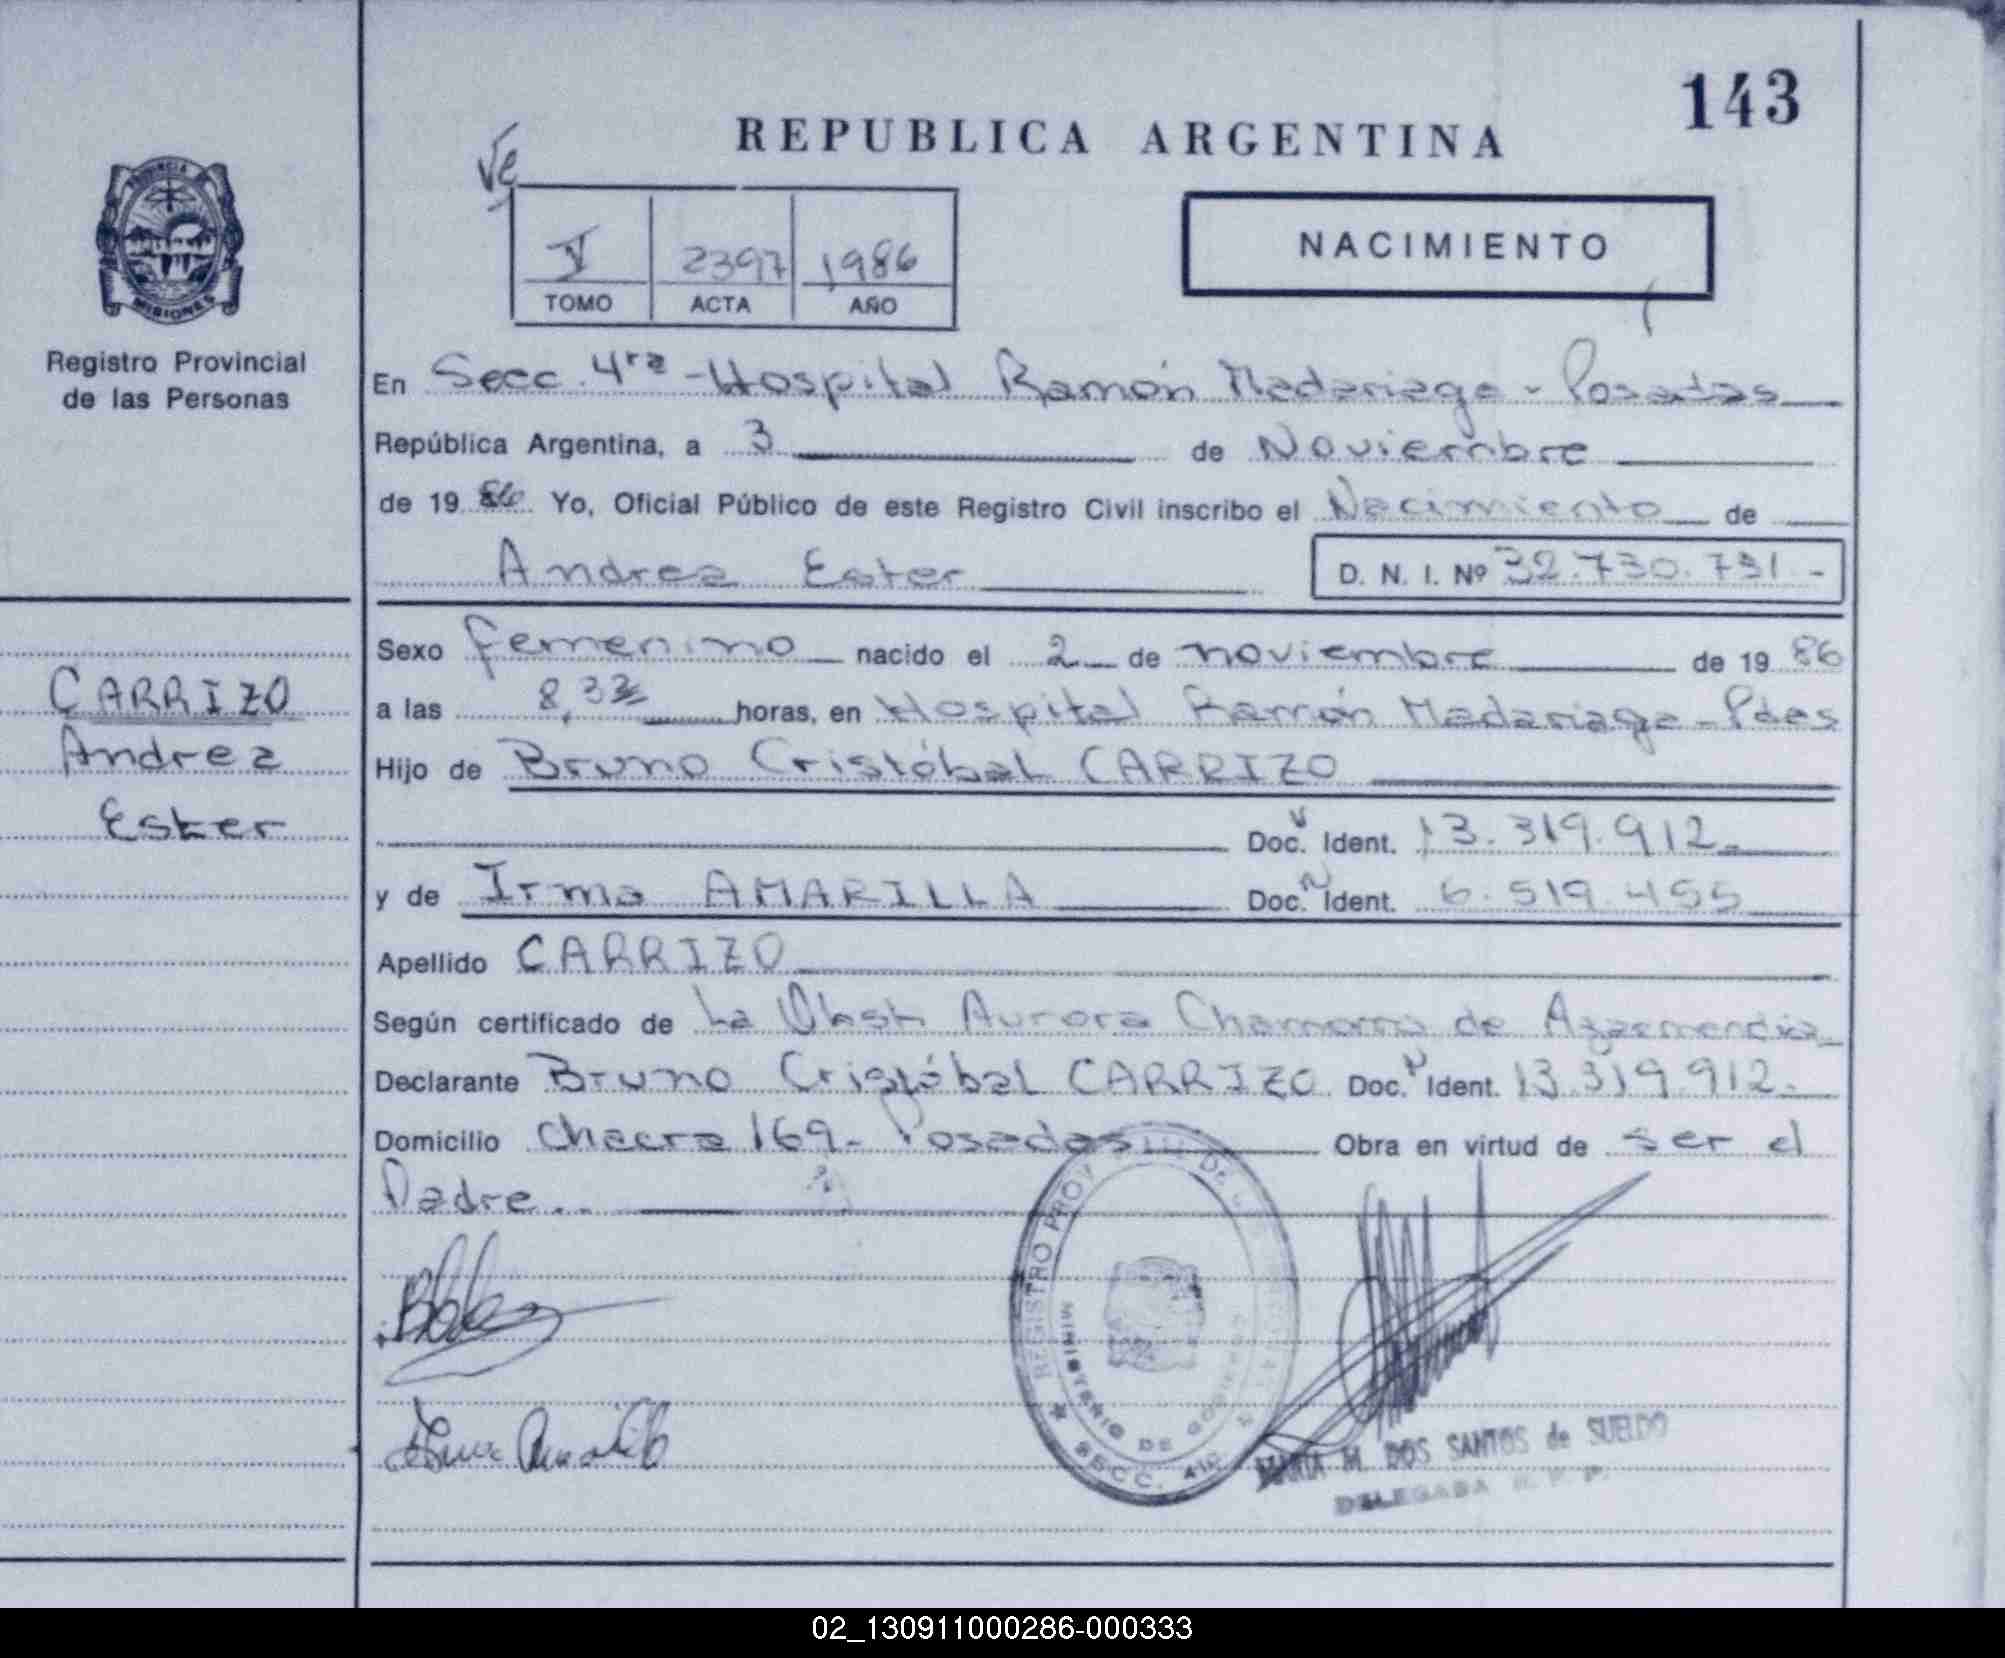 143
REPUBLICA ARGENTINA
PROVINCIA
MISIONES
Registro Provincial
de las Personas
V 2397 1986
TOMO ACTA AÑO
NACIMIENTO
En Secc. 4ra - Hospital Ramón Madariaga - Posadas
República Argentina, a 3 de Noviembre
de 19 86 Yo, Oficial Público de este Registro Civil inscribo el Nacimiento de
Andrea Ester D. N. I. Nº 32.730.731.-
Sexo femenino nacido el 2 de noviembre de 19 86
a las 8,32 horas, en Hospital Ramón Madariaga - Pdas
Hijo de Bruno Cristóbal CARRIZO
Doc. Ident. 13.319.912.-
y de Irma AMARILLA Doc. Ident. 6.519.455
Apellido CARRIZO
Según certificado de La Obst. Aurora Chamorro de
Declarante Bruno Cristóbal CARRIZO Doc. Ident. 13.319.912.-
Domicilio Chacra 169 - Posadas Obra en virtud de ser el
Padre..
CARRIZO
Andrea
Ester
REGISTRO PROV. DE
MINISTERIO DE GOBIERNO
SECC. 4ta
Irma Amarilla
MARIA M. DOS SANTOS de SUELDO
DELEGADA
02_130911000286-000333